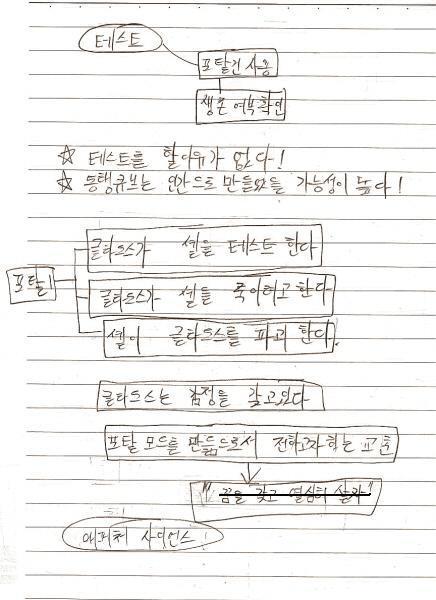 테스트
포탈건 사용
생존 여부확인
☆ 테스트를 할 이유가 없다!
☆ 동행큐브는 인간으로 만들었을 가능성이 높다!
글라도스가 첼을 테스트 한다
포탈1
글라도스가 첼을 죽이려고 한다
첼이 글라도스를 파괴 한다.
글라도스는 감정을 갖고있다
포탈 모드를 만듦으로서 전하고자하는 교훈
"꿈을 갖고 열심히 살라"
애퍼처 사이언스!